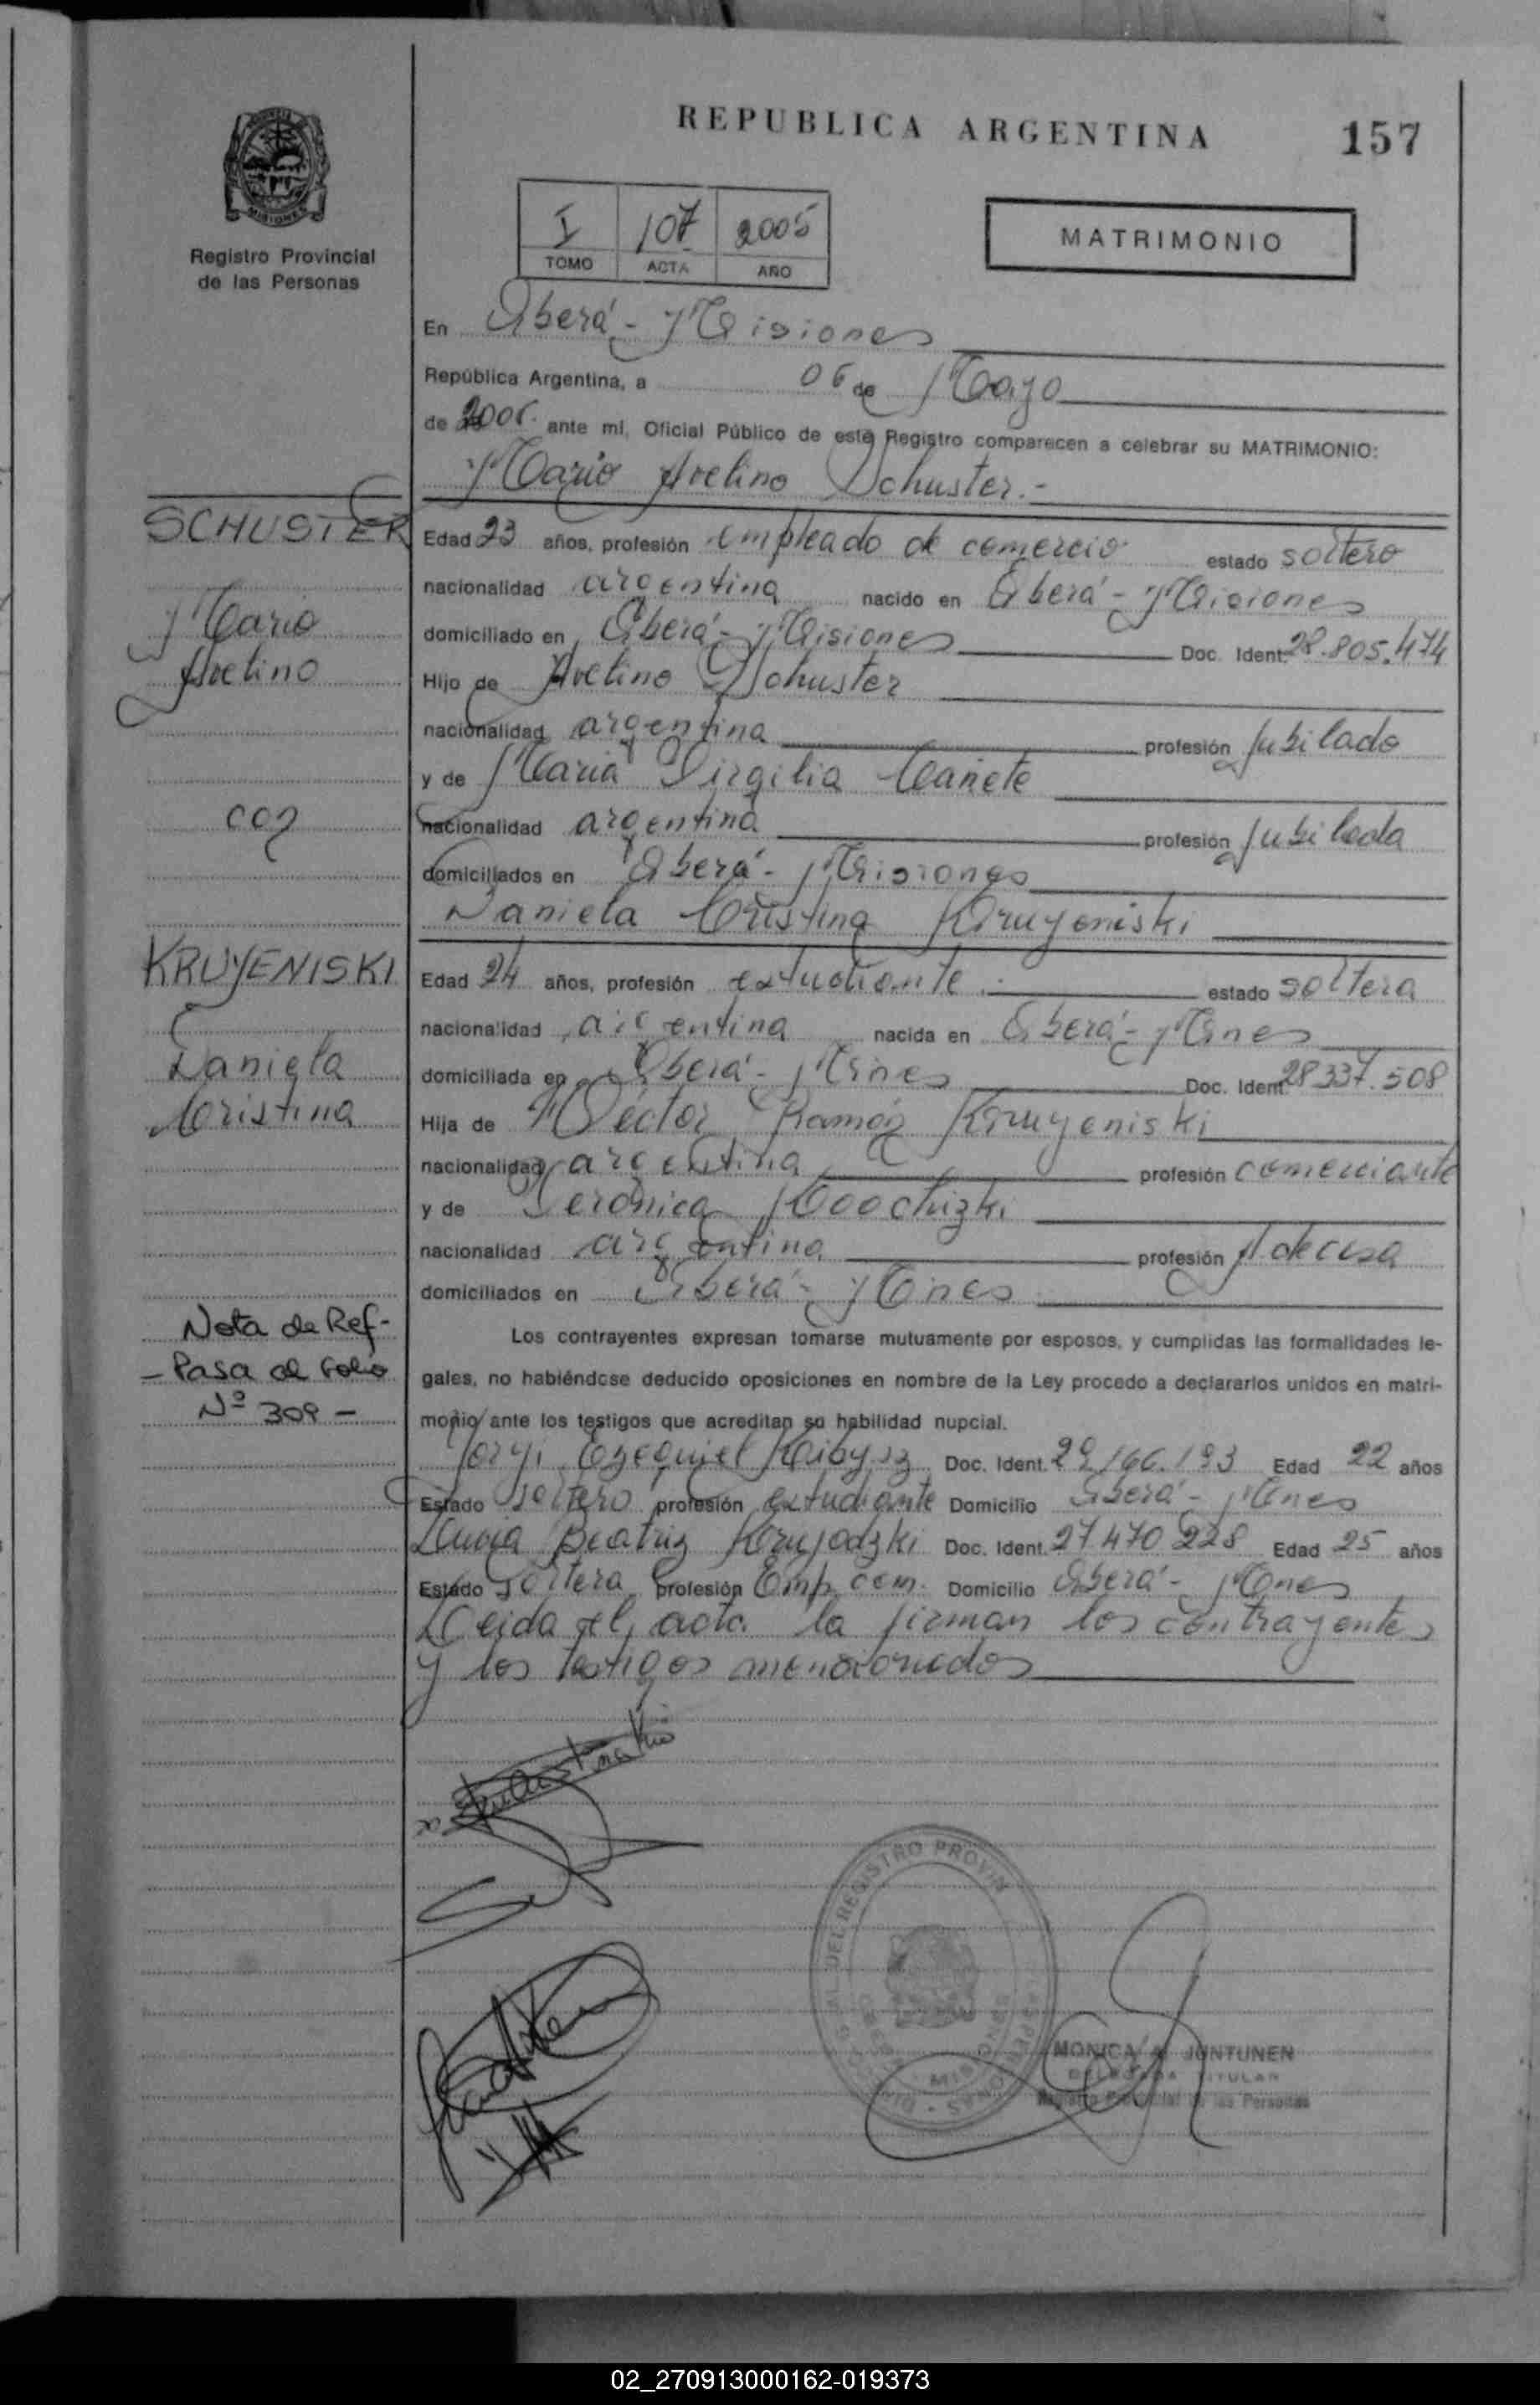 REPUBLICA ARGENTINA
157
MISIONES
Registro Provincial
de las Personas
I 107 2005
TOMO ACTA AÑO
MATRIMONIO
En Oberá - Misiones
República Argentina, a 06 de Mayo
de 2005 ante mí, Oficial Público de este Registro comparecen a celebrar su MATRIMONIO:
Mario Avelino Schuster.-
SCHUSTER
Mario
Avelino
con
KRUYENISKI
Daniela
Cristina
Nota de Ref-
- Pasa al Folio
Nº 309 -
Edad 23 años, profesión empleado de comercio estado soltero
nacionalidad argentina nacido en Oberá - Misiones
domiciliado en Oberá - Misiones Doc. Ident. 28.805.474
Hijo de Avelino Schuster
nacionalidad argentina profesión Jubilado
y de Maria Virgilia Cañete
nacionalidad argentina profesión Jubilada
domiciliados en Oberá - Misiones
Daniela Cristina Kruyeniski
Edad 24 años, profesión estudiante.- estado soltera
nacionalidad argentina nacida en Oberá - Mnes
domiciliada en Oberá - Mnes Doc. Ident. 28337.508
Hija de Héctor Ramón Kruyeniski
nacionalidad argentina profesión comerciante
y de Verónica
nacionalidad argentina profesión A. de casa
domiciliados en Oberá - Mnes
Los contrayentes expresan tomarse mutuamente por esposos, y cumplidas las formalidades le-
gales, no habiéndose deducido oposiciones en nombre de la Ley procedo a declararlos unidos en matri-
monio ante los testigos que acreditan su habilidad nupcial.
Ezequiel Doc. Ident. 29.166.193 Edad 22 años
Estado soltero profesión estudiante Domicilio Oberá - Mnes
Beatriz Doc. Ident. 27.470.228 Edad 25 años
Estado soltera profesión Emp. com. Domicilio Oberá - Mnes
Leida el acta la firman los contrayentes
y los testigos mencionados
MONICA A. JUNTUNEN
DELEGADA TITULAR
Registro Provincial de las Personas
02_270913000162-019373